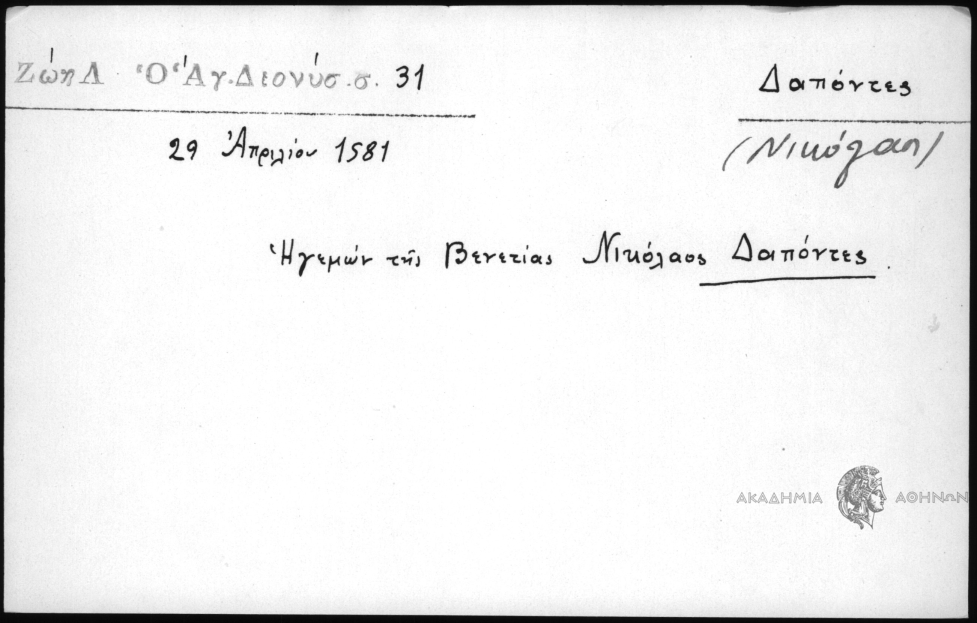 Ζώη Λ Ὁ Ἁγ. Διονύσ. σ. 31
Δαπόντες
29 Ἀπριλίου 1581
(Νικόλαη)
Ἡγεμών τῆς Βενετίας Νικόλαος Δαπόντες.
ΑΚΑΔΗΜΙΑ ΑΘΗΝΩΝ